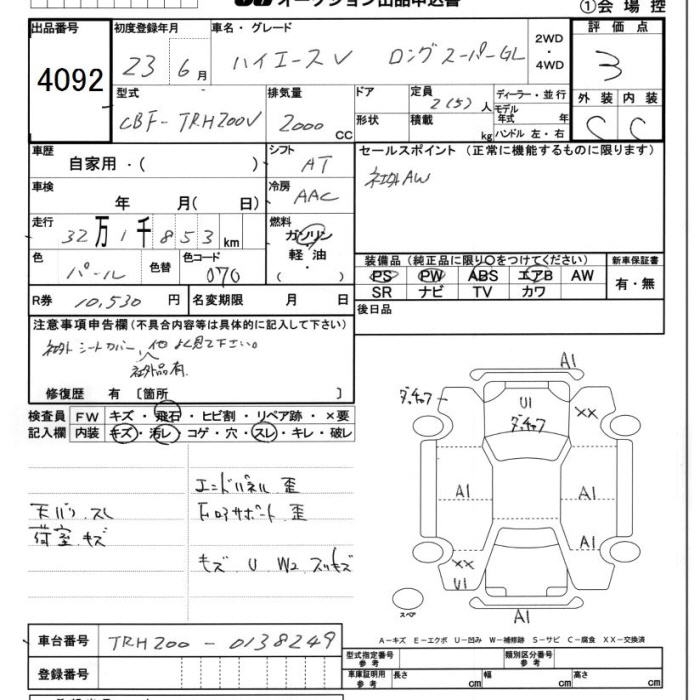 オークション出品申込書
①会場控
出品番号 4092
初度登録年月 23 6月
車名・グレード ハイエースV ロングスーパーGL
2WD・4WD
評価点 3
型式 CBF-TRH200V
排気量 2000 CC
ドア 形状
定員 2(5)人
積載 kg
ディーラー・並行
モデル年式 年
ハンドル 左・右
外装 C 内装 C
車歴 自家用・( )
シフト AT
セールスポイント (正常に機能するものに限ります)
社外AW
車検 年 月( 日)
冷房 AAC
走行 32万1千853km
燃料 ガソリン 軽油 ( ・ )
色 パール 色替
色コード 070
装備品(純正品に限り○をつけてください)
PS PW ABS エアB AW
SR ナビ TV カワ
新車保証書 有・無
R券 10,530円
名変期限 月 日
後日品
注意事項申告欄(不具合内容等は具体的に記入して下さい)
社外シートカバー、他よく見て下さい。
社外品有
修復歴 有 〔箇所 〕
検査員記入欄
FW キズ・飛石・ヒビ割・リペア跡・×要
内装 キズ・汚レ・コゲ・穴・スレ・キレ・破レ
天バリ スレ
荷室 キズ
エンドパネル 歪
Fロアサポート 歪
キズ U W2 スリキズ
A1
ダッチャク
U1
ダッチャク
××
A1
A1
A1
××
U1
A1
スペア
A-キズ E-エクボ U-凹み W-補修跡 S-サビ C-腐食 XX-交換済
車台番号 TRH200-0138249
登録番号
型式指定番号 参考
類別区分番号 参考
車庫証明用 参考 長さ cm 幅 cm 高さ cm